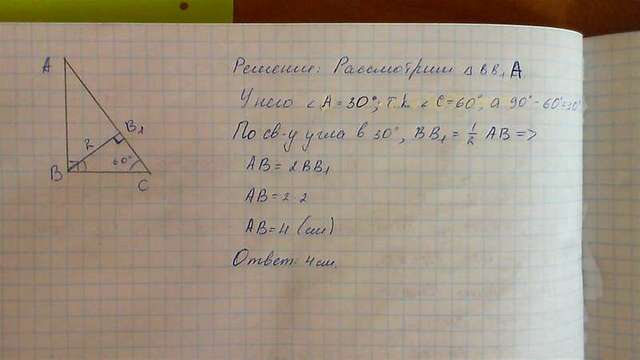 A
B₁
2
60°
B
C
Решение: Рассмотрим △ BB₁A
У него <A=30°, т.к. <C=60°, а 90°-60°=30°
По св-у угла в 30°, BB₁ = 1/2 AB =>
AB = 2BB₁
AB = 2·2
AB = 4 (см)
Ответ: 4 см.